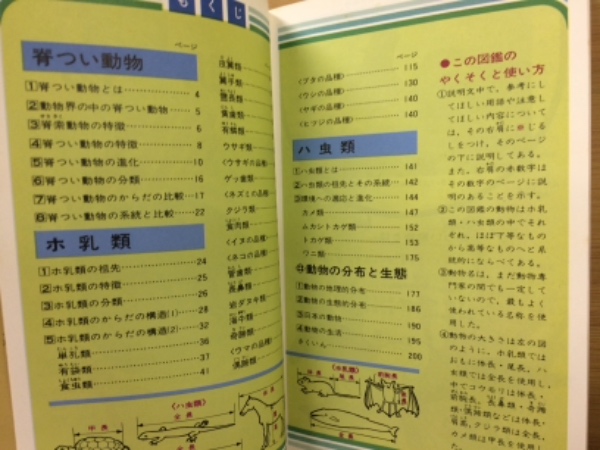 もくじ
ページ
脊つい動物
①脊つい動物とは 4
②動物界の中の脊つい動物 5
③脊索動物の特徴 6
④脊つい動物の特徴 8
⑤脊つい動物の進化 10
⑥脊つい動物の分類 16
⑦脊つい動物のからだの比較 17
⑧脊つい動物の系統と比較 22
ホ乳類
①ホ乳類の祖先 24
②ホ乳類の特徴 25
③ホ乳類の分類 26
④ホ乳類のからだの構造(1) 28
⑤ホ乳類のからだの構造(2) 32
単孔類 36
有袋類 37
食虫類 41
皮翼類
翼手類
霊長類
貧歯類
有鱗類
ウサギ類
〈ウサギの品種〉
ゲッ歯類
〈ネズミの品種〉
クジラ類
食肉類
〈イヌの品種〉
〈ネコの品種〉
管歯類
長鼻類
岩ダヌキ類
海牛類
奇蹄類
〈ウマの品種〉
偶蹄類
〈ハ虫類〉
全長
甲長
ページ
〈ブタの品種〉 115
〈ウシの品種〉 130
〈ヤギの品種〉 140
〈ヒツジの品種〉 140
ハ虫類
①ハ虫類とは 141
②ハ虫類の祖先とその系統 142
③環境への適応と進化 144
カメ類 147
ムカシトカゲ類 152
トカゲ類 153
ワニ類 175
動物の分布と生態
①動物の地理的分布 177
②動物の生態的分布 186
③日本の動物 190
④動物の生活 195
さくいん 200
〈ホ乳類〉
●この図鑑の
やくそくと使い方
①説明文中で、参考にし
てほしい用語や注意し
てほしい内容について
は、その右肩に※じる
しをつけ、そのページ
の下に説明してある。
また、右肩の赤数字は
その数字のページに説
明のあることを示す。
②この図鑑の動物はホ乳
類・ハ虫類の中でそれ
ぞれ、ほぼ下等なもの
から高等なものへと系
統的にならべてある。
③動物名は、まだ動物専
門家の間でも一定して
いないので、最もよく
使われている名称を使
用した。
④動物の大きさは左の図
のように、ホ乳類では
おもに体長・尾長、ハ
虫類では全長を使用し、
中でコウモリは体長・
前腕長、長鼻類・奇蹄
類・偶蹄類などは体長・
肩高、クジラ類は全長、
カメ類は甲長を使用し
た。